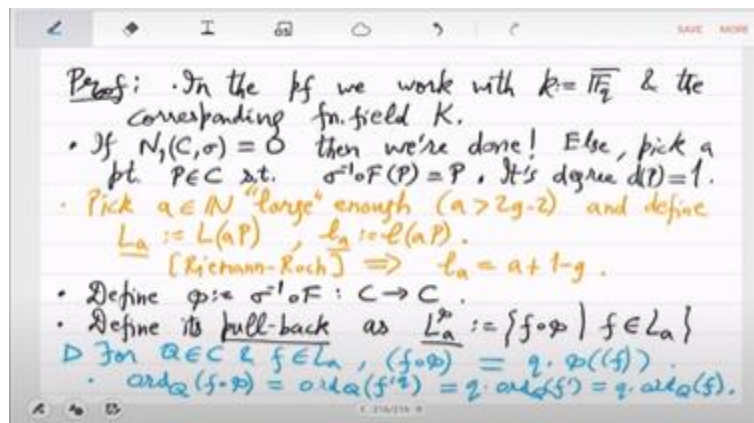 SAVE MORE
Proof: · In the pf we work with k := \overline{F_q} & the
corresponding fn. field K.
· If N₁(C,σ) = 0 then we're done! Else, pick a
pt. P∈C s.t. σ⁻¹∘F(P) = P. It's degree d(P)=1.
· Pick a∈ℕ "large" enough (a > 2g-2) and define
L_a := L(aP), l_a := l(aP).
[Riemann-Roch] ⟹ l_a = a+1-g.
· Define φ := σ⁻¹∘F : C→C.
· Define its pull-back as L_a^φ := {f∘φ | f∈L_a}
▷ For Q∈C & f∈L_a, (f∘φ) = q·φ((f))
· ord_Q(f∘φ) = ord_Q(f'^q) = q·ord_Q(f') = q·ord_Q(f).